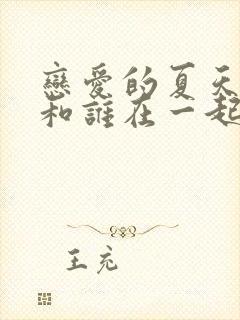 戀愛的夏天
和誰在一起
王充